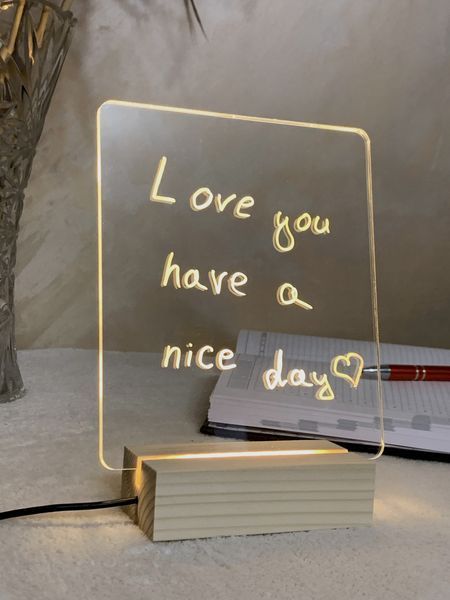 Love you
have a
nice day♡